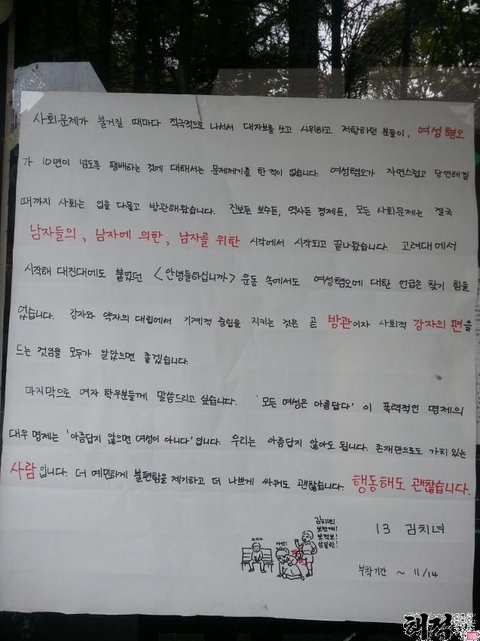 사회문제가 불거질 때마다 적극적으로 나서서 대자보를 쓰고 시위하고 저항하던 분들이, 여성혐오
가 10년이 넘도록 팽배하는 것에 대해서는 문제제기를 한 적이 없습니다. 여성혐오가 자연스럽고 당연해질
때까지 사회는 입을 다물고 방관해왔습니다. 진보든 보수든, 역사든 경제든, 모든 사회문제는 결국
남자들의, 남자에 의한, 남자를 위한 시각에서 시작되고 끝나왔습니다. 고려대에서
시작해 대진대에도 붙었던 <안녕들하십니까> 운동 속에서도 여성혐오에 대한 언급은 찾기 힘들
었습니다. 강자와 약자의 대립에서 기계적 중립을 지키는 것은 곧 방관이자 사회적 강자의 편을
드는 것임을 모두가 알았으면 좋겠습니다.
마지막으로 여자 학우분들께 말씀드리고 싶습니다. '모든 여성은 아름답다' 이 폭력적인 명제의
대우 명제는 '아름답지 않으면 여성이 아니다' 입니다. 우리는 아름답지 않아도 됩니다. 존재만으로도 가치 있는
사람입니다. 더 예민하게 불편함을 제기하고 더 나쁘게 싸워도 괜찮습니다. 행동해도 괜찮습니다.
13 김치녀
부착기간 ~ 11/14